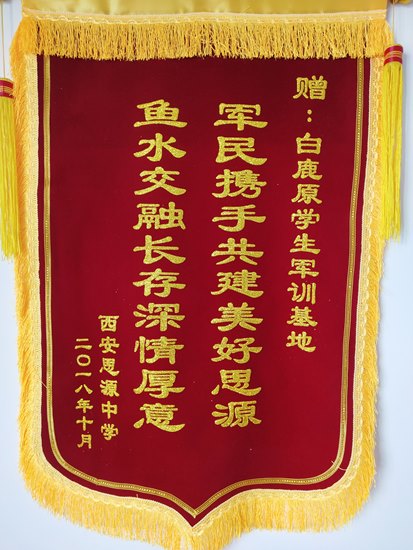 赠：白鹿原学生军训基地
军民携手共建美好思源
鱼水交融长存深情厚意
西安思源中学
二〇一八年十月